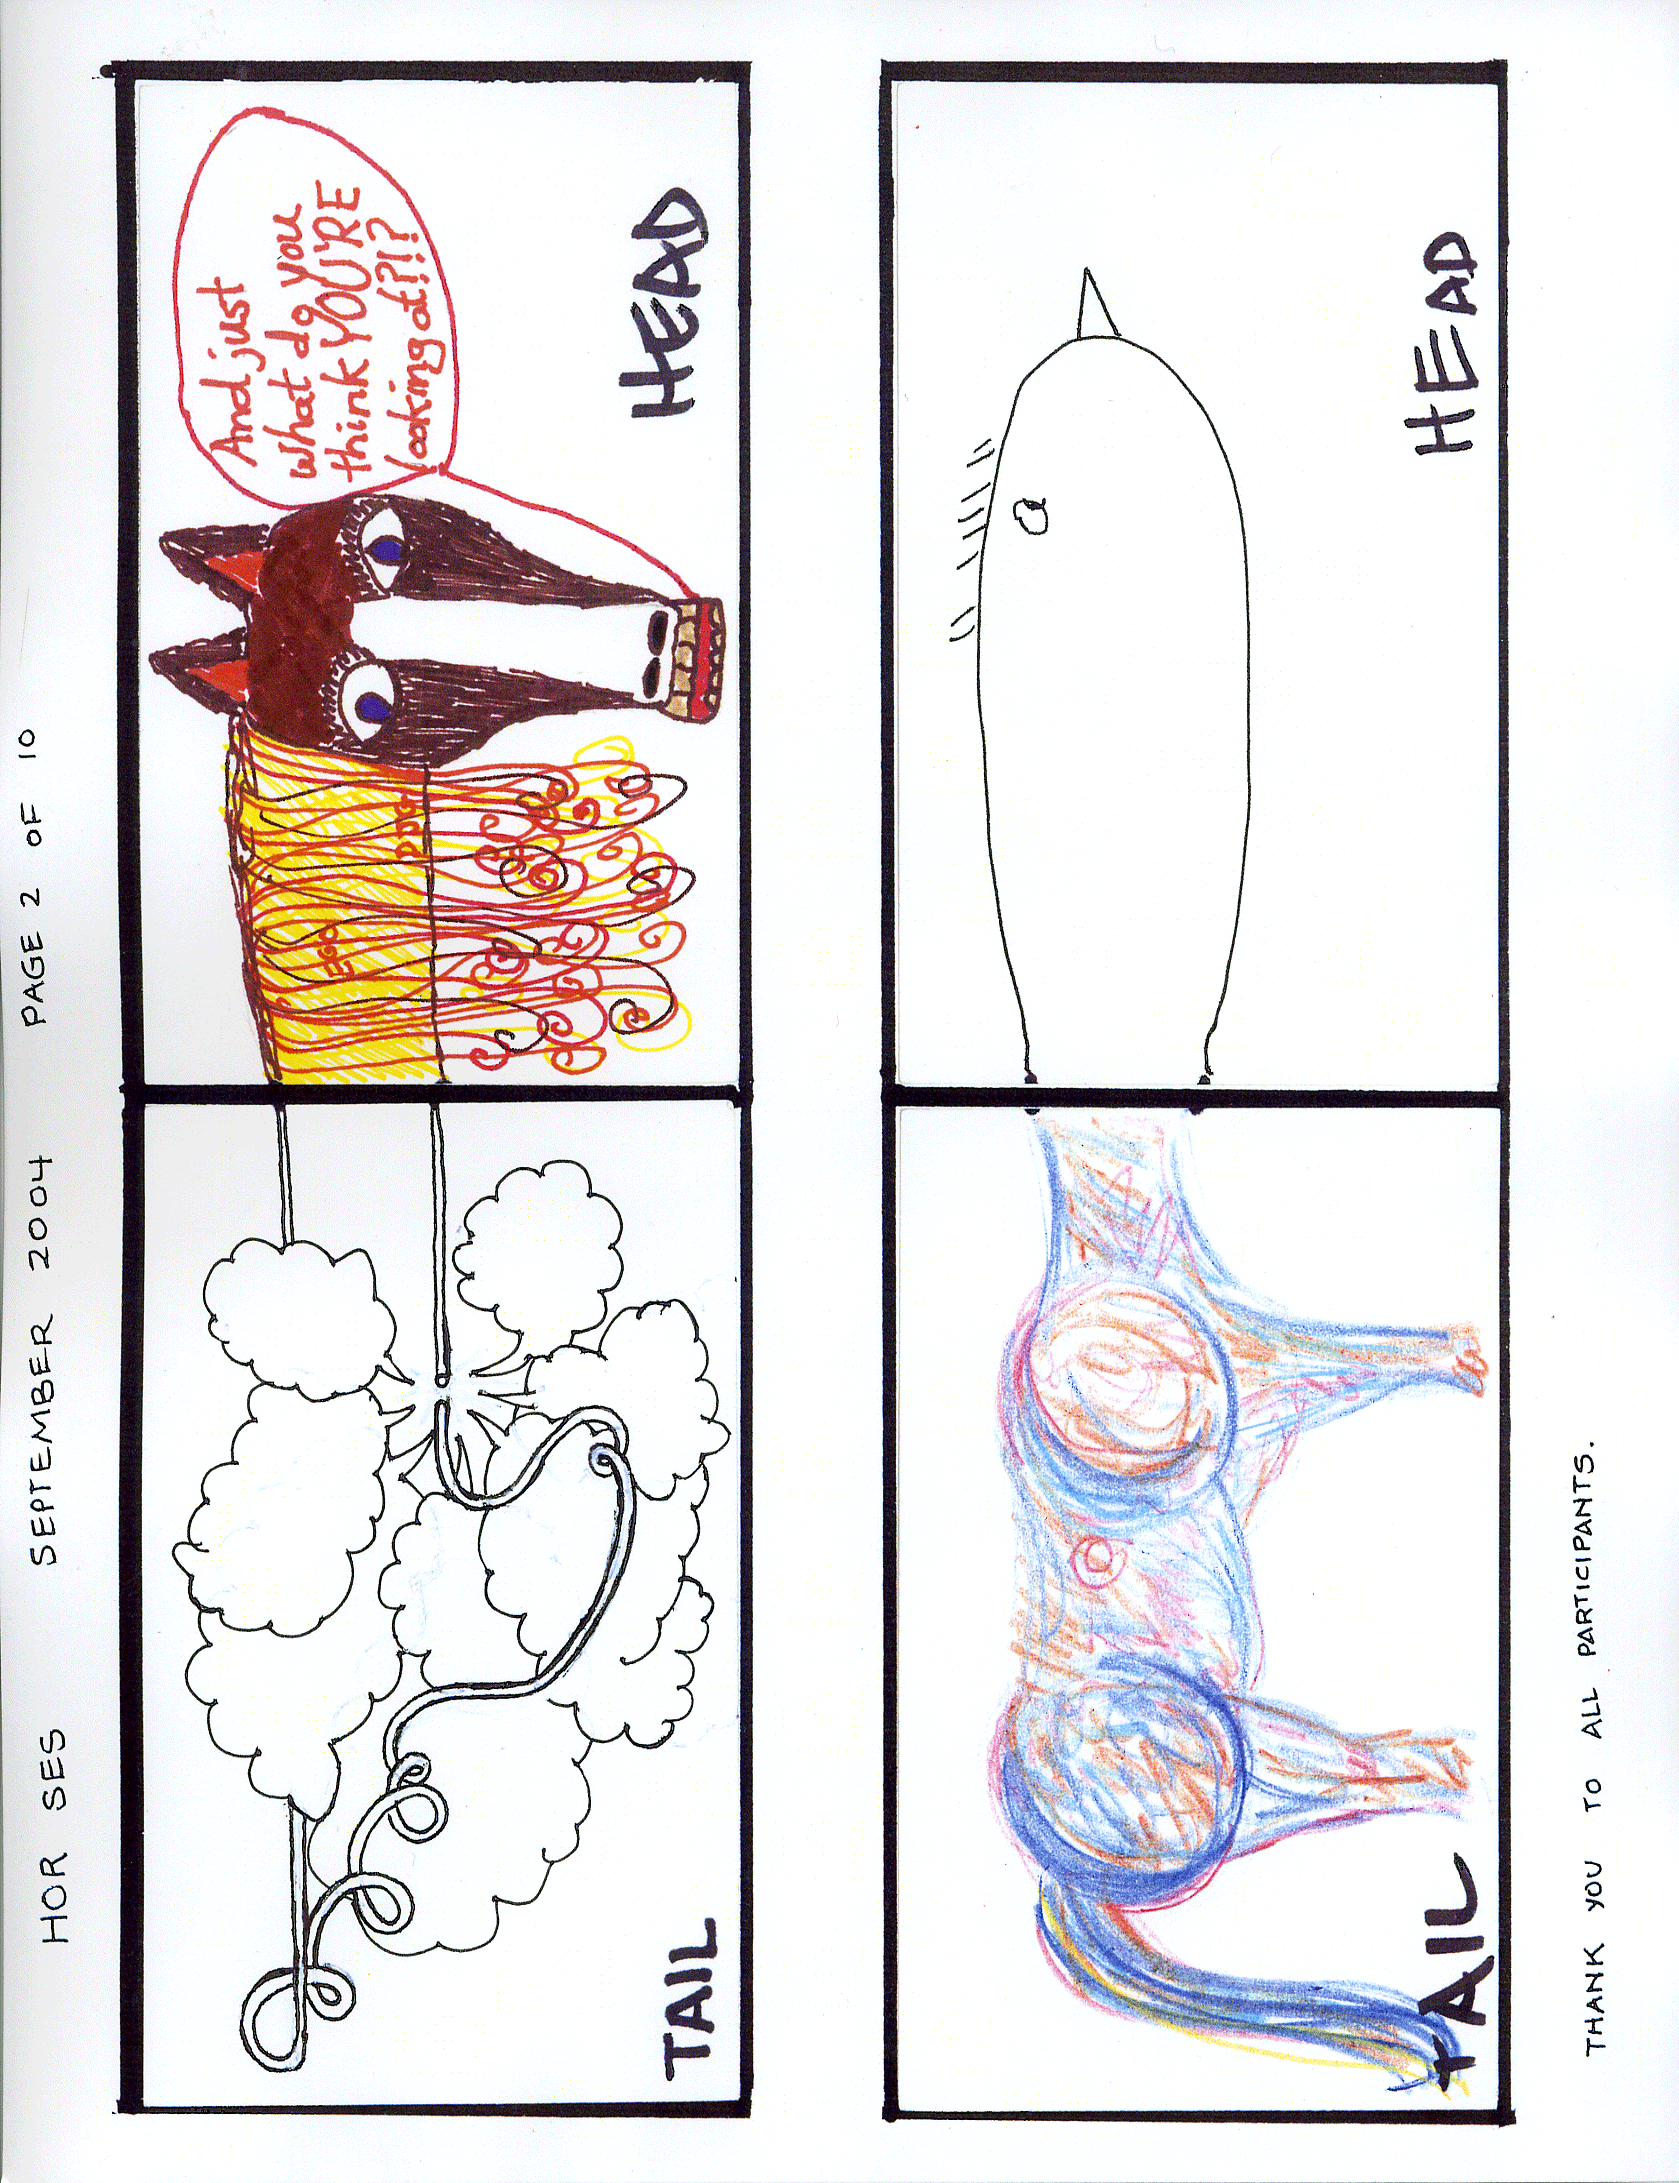 HOR SES SEPTEMBER 2004 PAGE 2 OF 10
And just
what do you
think YOU'RE
looking at?!?
EGO
TAIL
HEAD
TAIL
HEAD
THANK YOU TO ALL PARTICIPANTS.